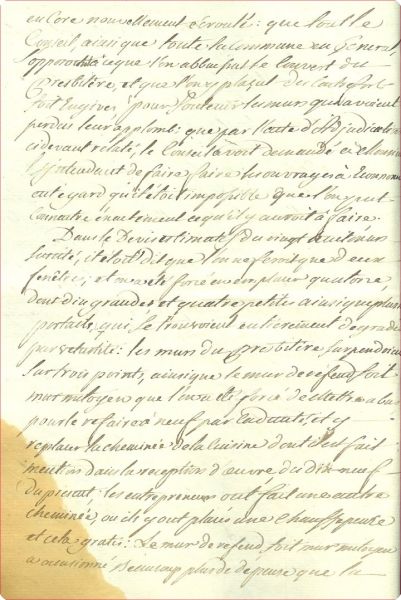 encore nouvellement écroulé: que tout le
Conseil, ainsi que toute la commune en Général
s'opposa à ce que l'on abbattit le Couvert du
Presbitère, et que l'on y plaçat des Contrefort
fort Exigives pour soutenir les murs qui avoient
perdus leur applomb: que par l'acte d'Adjudication
cidevant relaté le Conseil avoit demandé à
l'intendant de faire faire les ouvrages à Economie
eut egard qu'il étoit impossible que l'on put
connoitre exactement ce qu'il y auroit à faire.
Dans le Devis estimatif du vingt huit
susdaté, il etoit dit que l'on ne feroit que deux
fenêtres; et on a été forcé en emplacer quatorze,
dont dix grandes et quatre petites ainsi que plusieurs
portails, qui se trouvoient entièrement dégradés
par vetusté: les murs du presbitère surpendoient
sur trois points, ainsi que le mur de refend soit
mur mitoyen que l'on a été forcé de abbattre a bas
pour le refaire à neuf par Cadants, et y
replacer la cheminée de la Cuisine dont il est fait
mention dans la reception d'œuvre du dix neuf
du présent, les entrepreneurs ont fait une autre
cheminée, ou ils y ont placés une Chauffepense
et cela gratis: Le mur de refend, soit mur mitoyen
a occasionné Beaucoup plus de depense que la